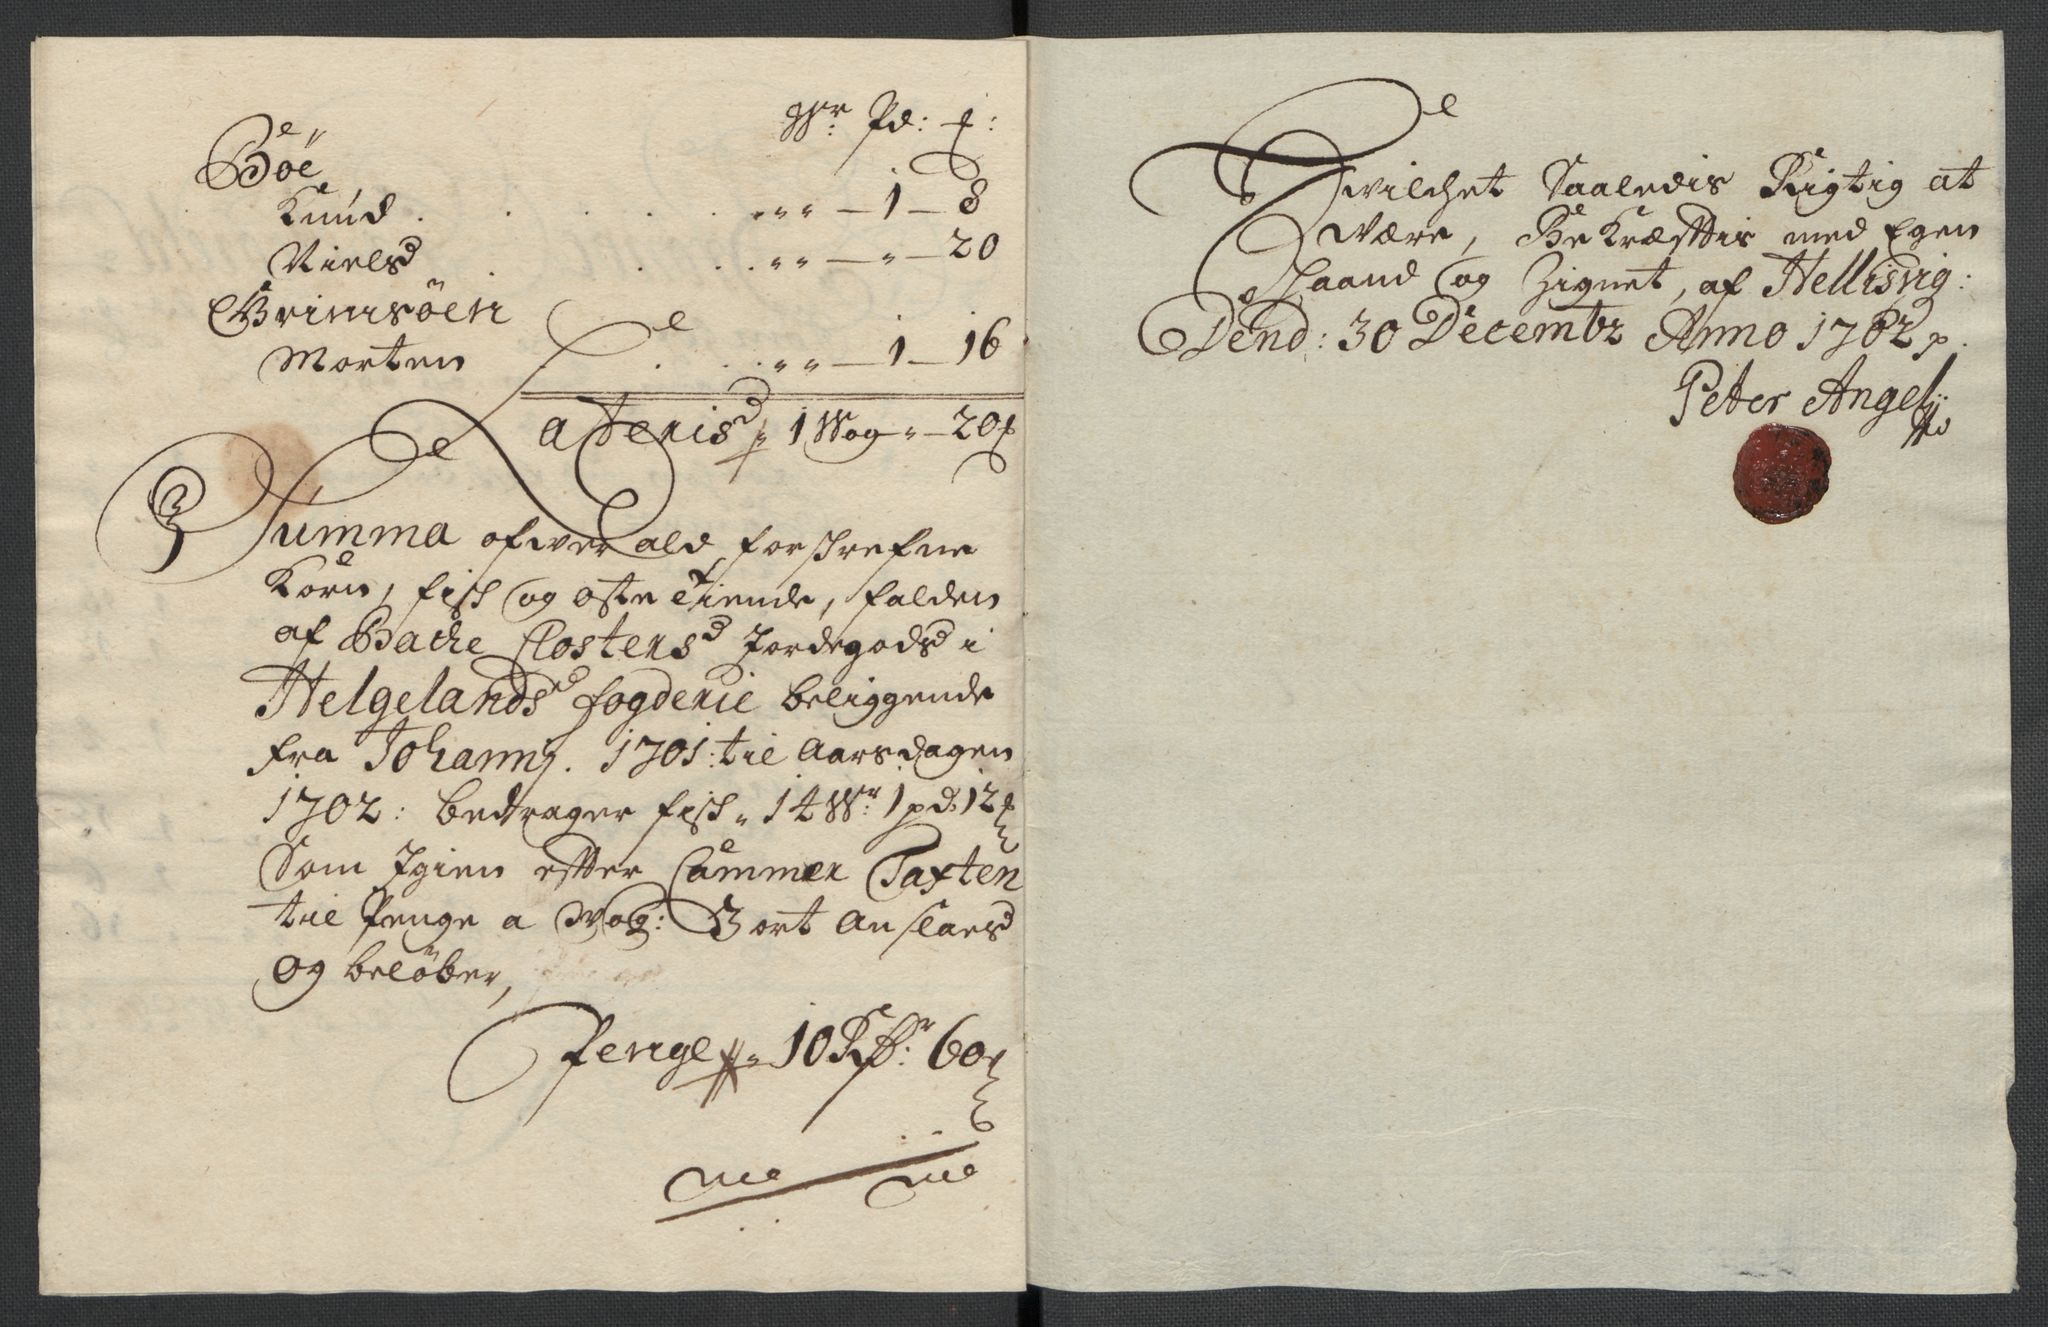 Wr: Pd: ℔:
Böe
Knud . . . . . „ „ — 1 — 8
Nielsd . . . . „ „ — „ — 20
Grimsöen
Morten . . . „ „ — 1 — 16
Aterisd 1 Wog „ — 20 ℔
Summa ofwer ald forschrefne
Korn, fisch og Oste Tiende, falden
af Bache Closters Jordegods i
Helgelands fogderie beliggende
fra Johannj. 1701: til Aarsdagen
1702: bedrager fisch „ 14 Wr: 1 pd: 12 ℔
Som Igien effter Cammer Taxten
til Penge a Wog: 3 ort Anslaes
og belöber,
Penge „ 10 Rdr: 60 ß
Hvilchet Saaledis Rigtig at
Være, BeKræfftis med Egen
Haand og Zignet, af Hellisvig:
Dend: 30 Decembr Anno 1702 p.
Peter Angell